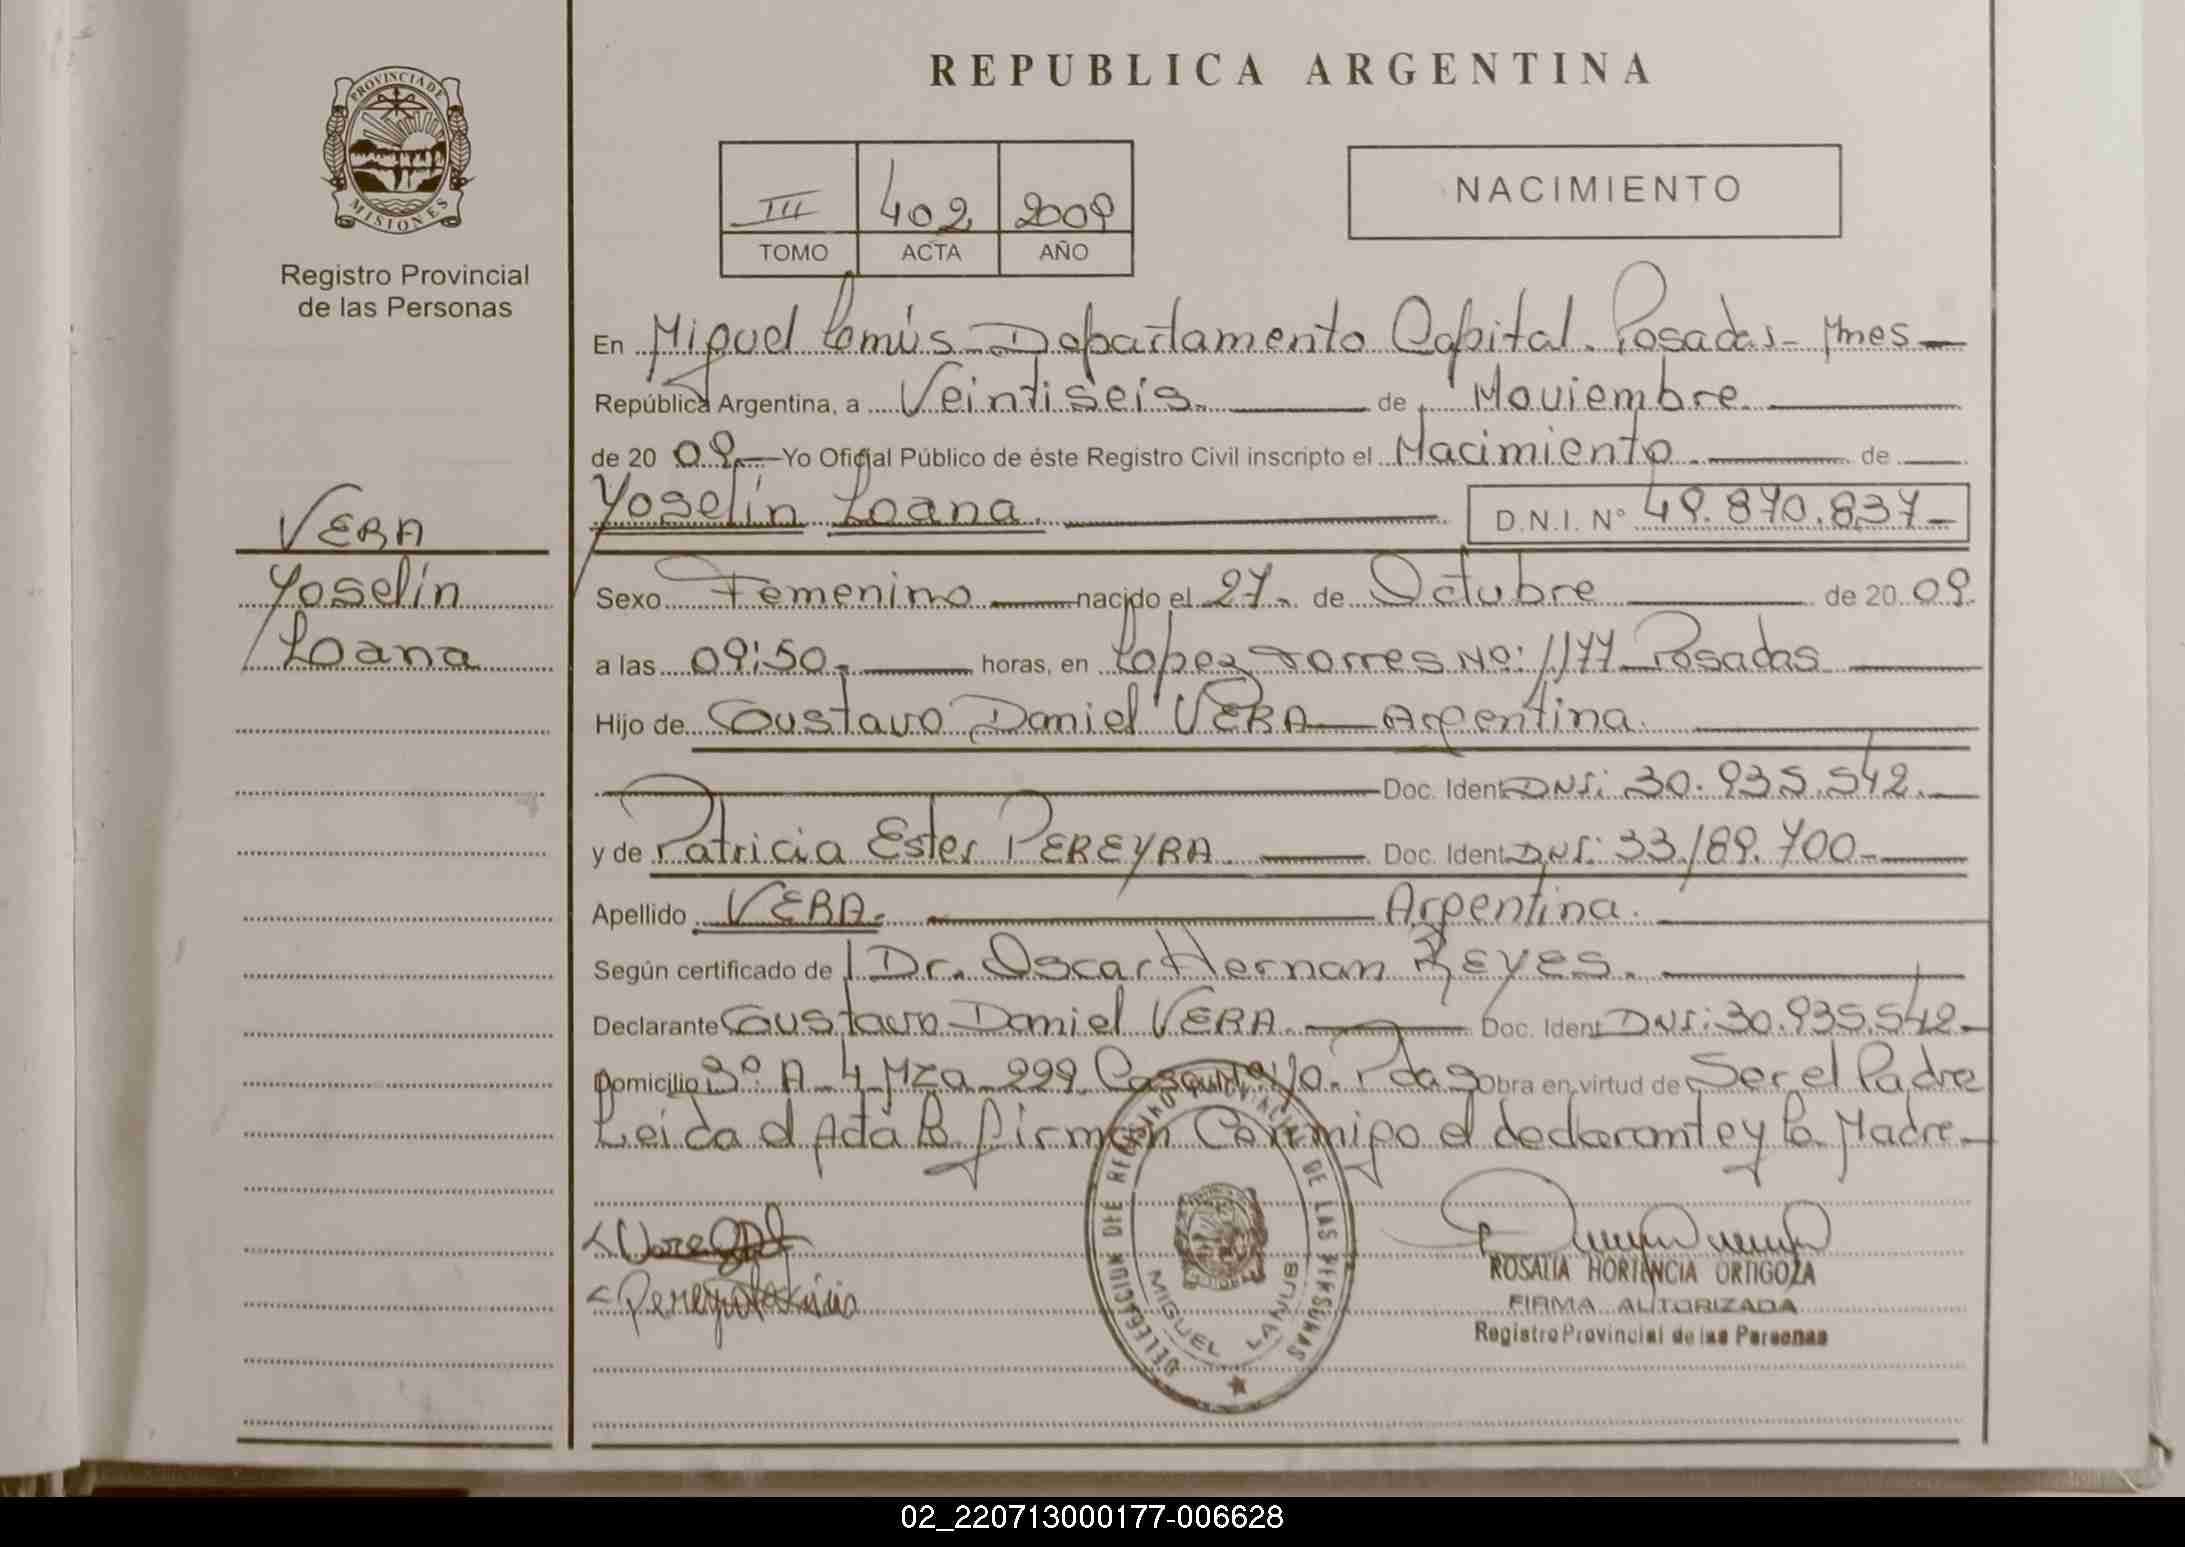 REPUBLICA ARGENTINA
PROVINCIA DE MISIONES
Registro Provincial
de las Personas
III 402 2009
TOMO ACTA AÑO
NACIMIENTO
En Miguel Lanús - Departamento Capital. Posadas - Mnes
República Argentina, a Veintiseis. de Noviembre
de 20 09. Yo Oficial Público de éste Registro Civil inscripto el Nacimiento. de
Yoselín Loana. D.N.I. N° 49.870.837-
VERA
Yoselín
Loana
Sexo Femenino nacido el 27. de Octubre de 20 09.
a las 09:50. horas, en Lopez Torres No: 1177 Posadas
Hijo de Gustavo Daniel VERA - Argentina.
Doc. Ident DNI: 30.935.542.
y de Patricia Ester PEREYRA. Doc. Ident DNI: 33.189.700-
Apellido VERA. Argentina.
Según certificado de Dr. Oscar Hernan REYES.
Declarante Gustavo Daniel VERA. Doc. Ident DNI: 30.935.542-
Domicilio 3° A - 4 - Mza - 299 Pdas Obra en virtud de Ser el Padre
Leida el Acta la firman Conmigo el declarante y la Madre-
DELEGACION DE REGISTRO PROVINCIAL DE LAS PERSONAS
MIGUEL LANUS
ROSALIA HORTENCIA ORTIGOZA
FIRMA AUTORIZADA
Registro Provincial de las Personas
02_220713000177-006628